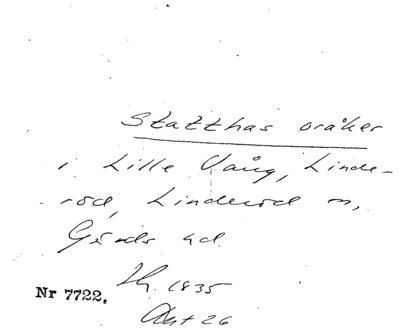 Statthas oråker
i Lille Vång, Linde-
röd, Linderöd sn,
Gärds hd
Nr 7722.
1835
Akt 26